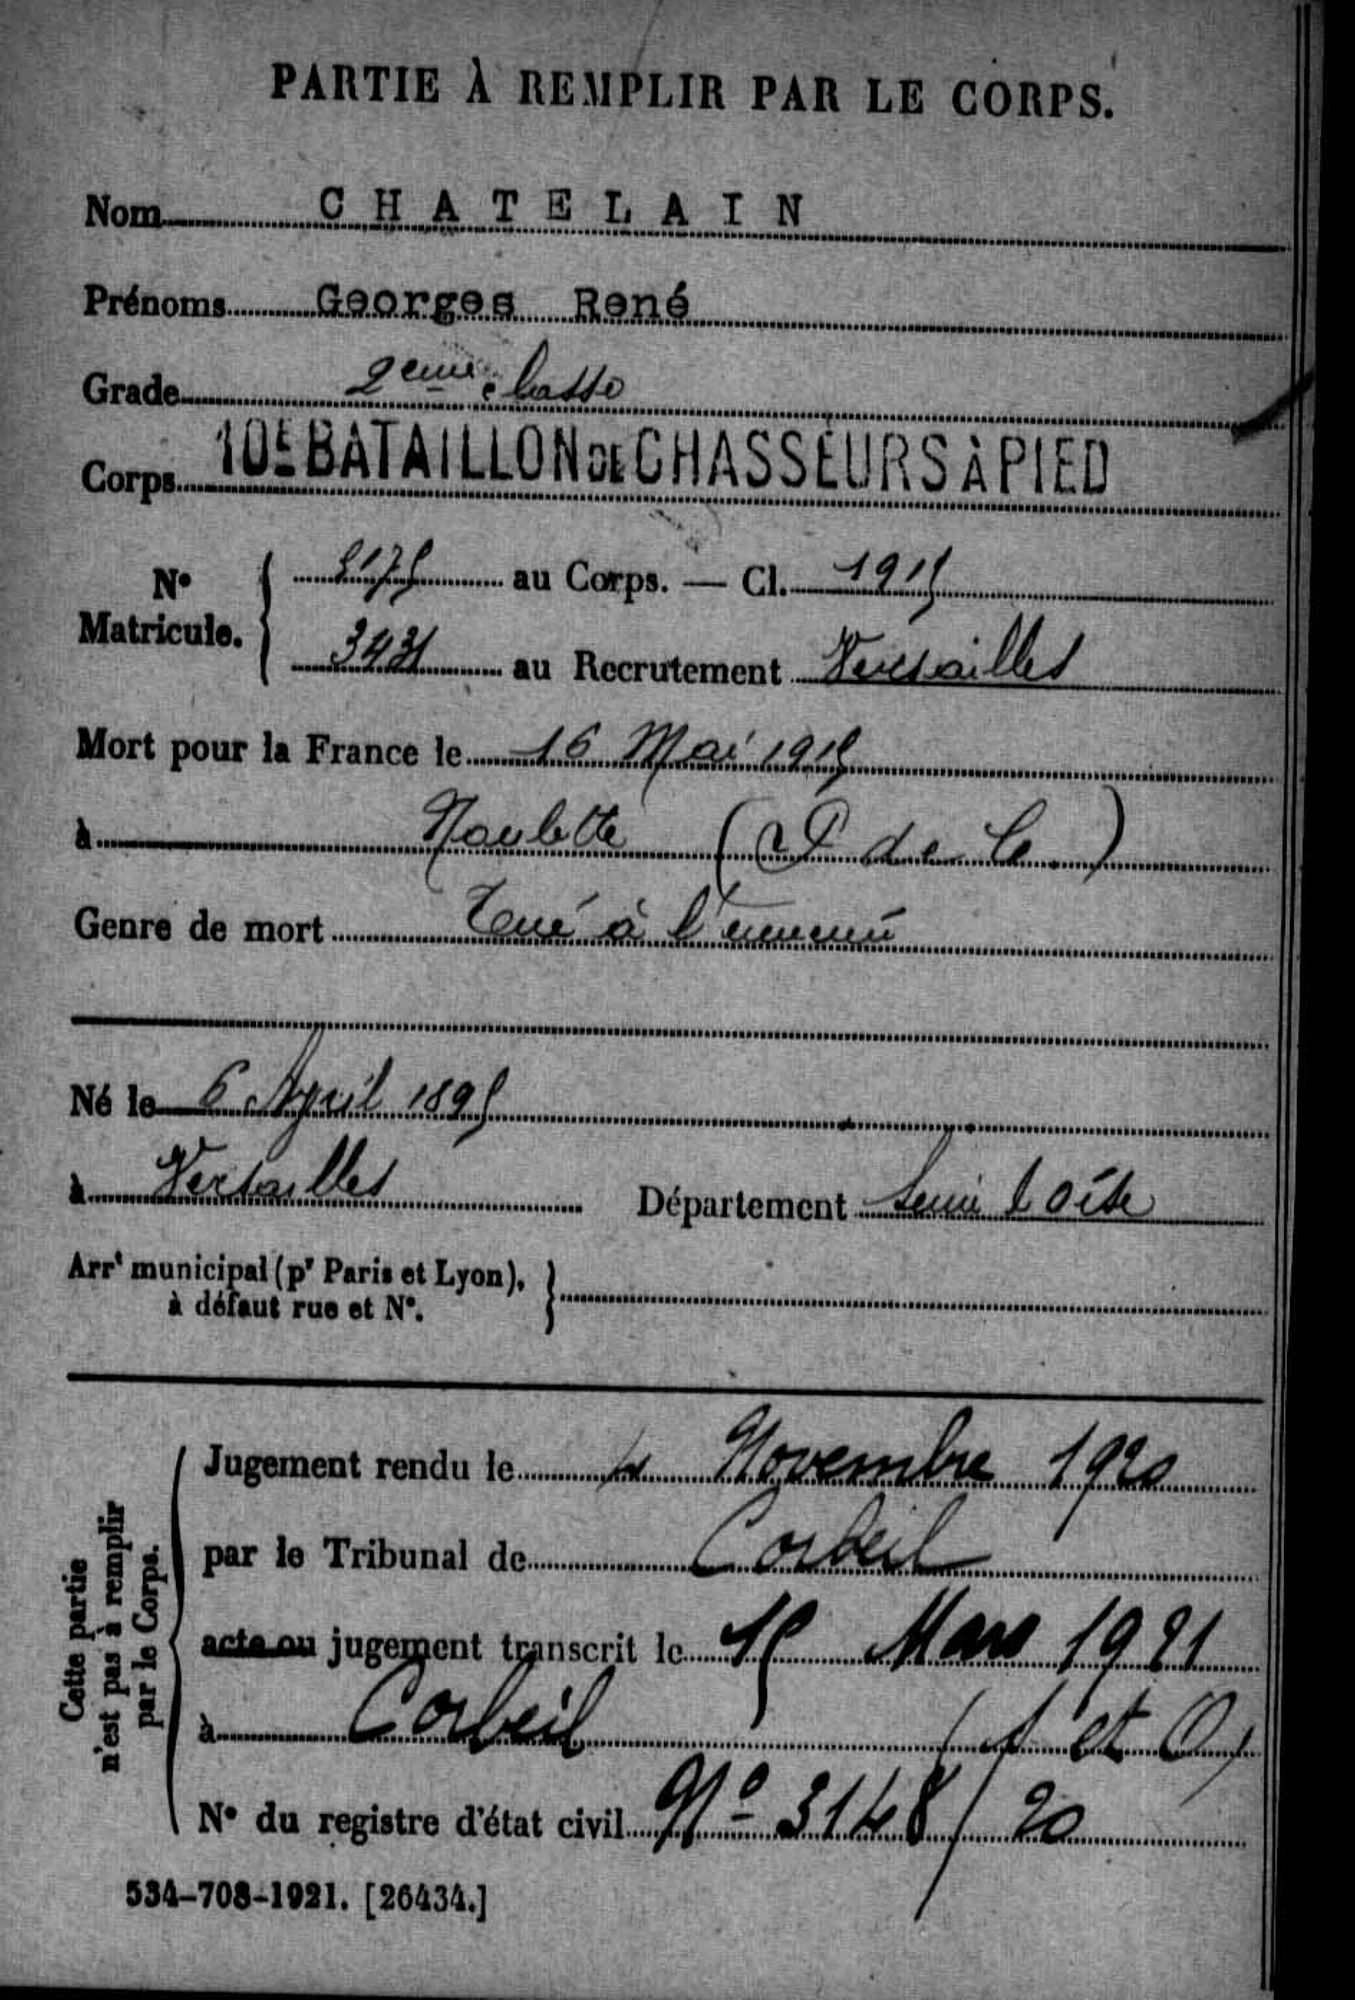 PARTIE À REMPLIR PAR LE CORPS.
Nom CHATELAIN
Prénoms Georges René
Grade 2eme classe
Corps 10E BATAILLON DE CHASSEURS À PIED
N° Matricule. 5175 au Corps. — Cl. 1915
3431 au Recrutement Versailles
Mort pour la France le 16 Mai 1915
à Noulette (P de C.)
Genre de mort Tué à l'ennemi
Né le 6 Avril 1895
à Versailles Département Seine & Oise
Arrt municipal (pr Paris et Lyon),
à défaut rue et N°.
Cette partie
n'est pas à remplir
par le Corps.
Jugement rendu le 4 Novembre 1920
par le Tribunal de Corbeil
acte ou jugement transcrit le 15 Mars 1921
à Corbeil (S et O)
N° du registre d'état civil N° 3148/20
534-708-1921. [26434.]